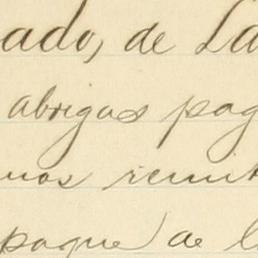 ado, de La
abrigos pag
nos remit
paque de l